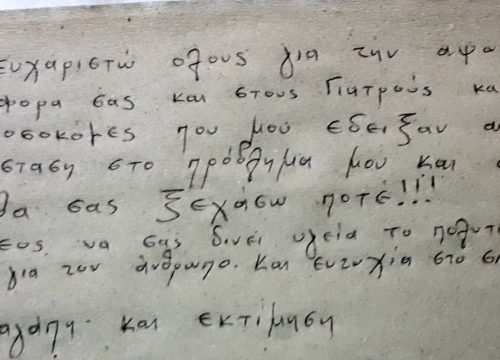 ευχαριστώ ολους για την αφο
φορα σας και στους Γιατρούς κα
οσοκόμες που μού εδειξαν α
σταση στο πρόβλημα μου και
θα σας ξεχάσω ποτέ!!!
εος να σας δινει υγεία το πολυτι
για τον άνθρωπο. Και ευτυχία στο σπ
αγάπη. και εκτίμηση